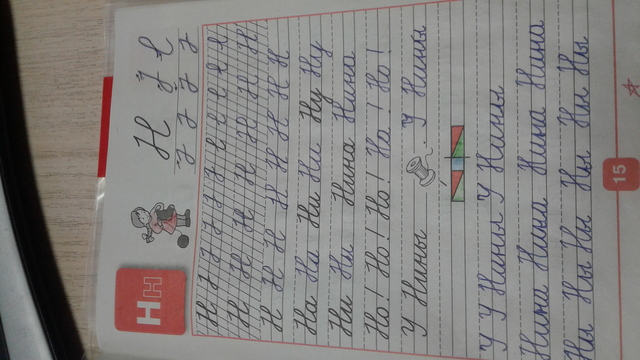 Н н
Н
Н
Н Н Н Н Н Н
Н Н Н Н Н Н Н Н
На На Ни Ни Ну Ну
Ни Ни Нина Нина
Но! Но! Но! Но! Но!
У Нины У Нины
У У Нины У Нины
Нина Нина Нина Нина
Ны Ны Ны Ны Ны Ны
15